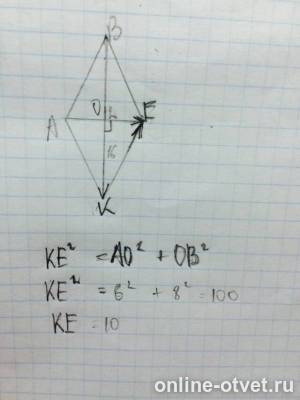 B
O
A
E
16
K
KE² = AO² + OB²
KE² = 6² + 8² = 100
KE = 10
online-otvet.ru